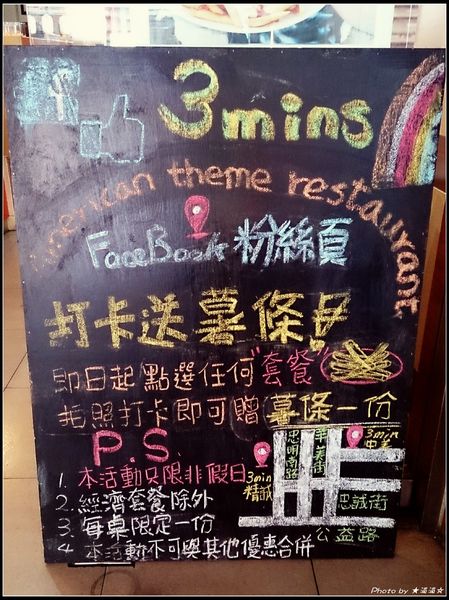 f
3mins
american theme restaurant
FaceBook 粉絲頁
打卡送薯條
即日起 點選任何"套餐"
拍照打卡即可贈薯條一份
P.S.
1. 本活動只限非假日
2. 經濟套餐除外
3. 每桌限定一份
4 本活動不可與其他優惠合併
3min
精誠
忠明南路
華美街
3min
中美
忠誠街
公益路
Photo by ★滿滿☆